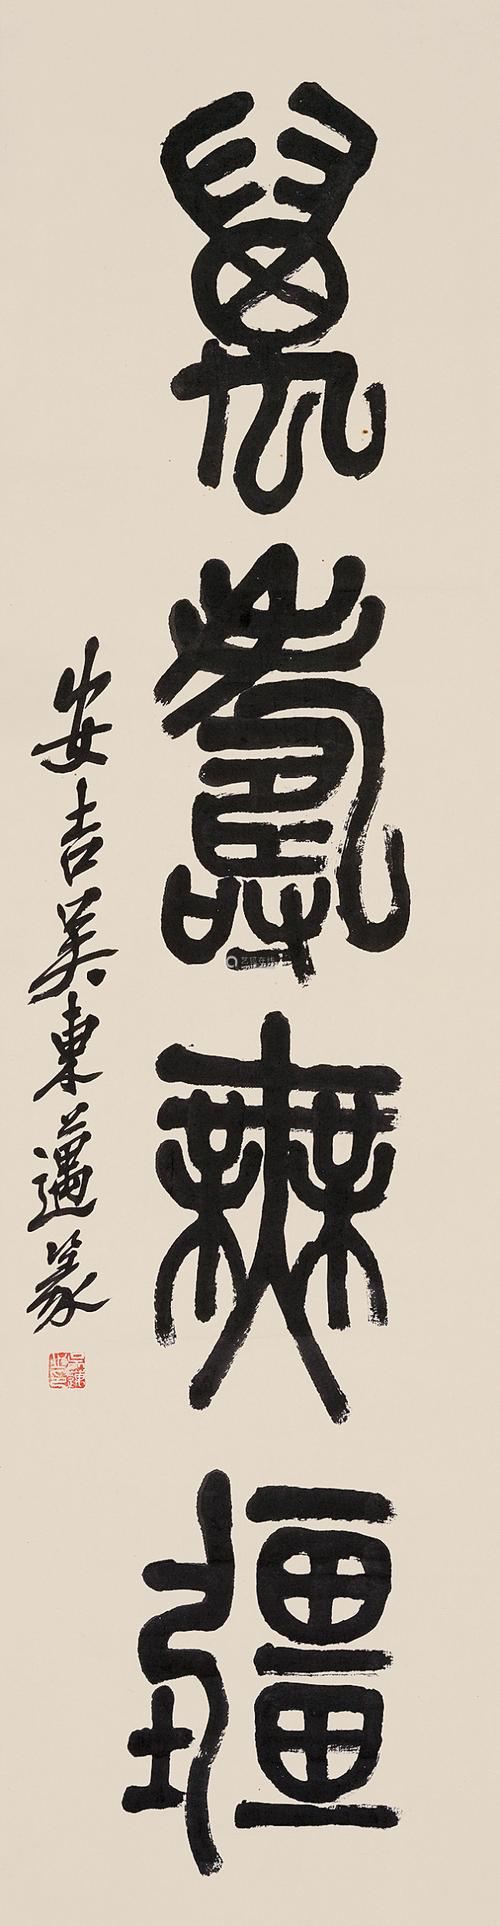 萬壽無疆
安吉吴東邁篆